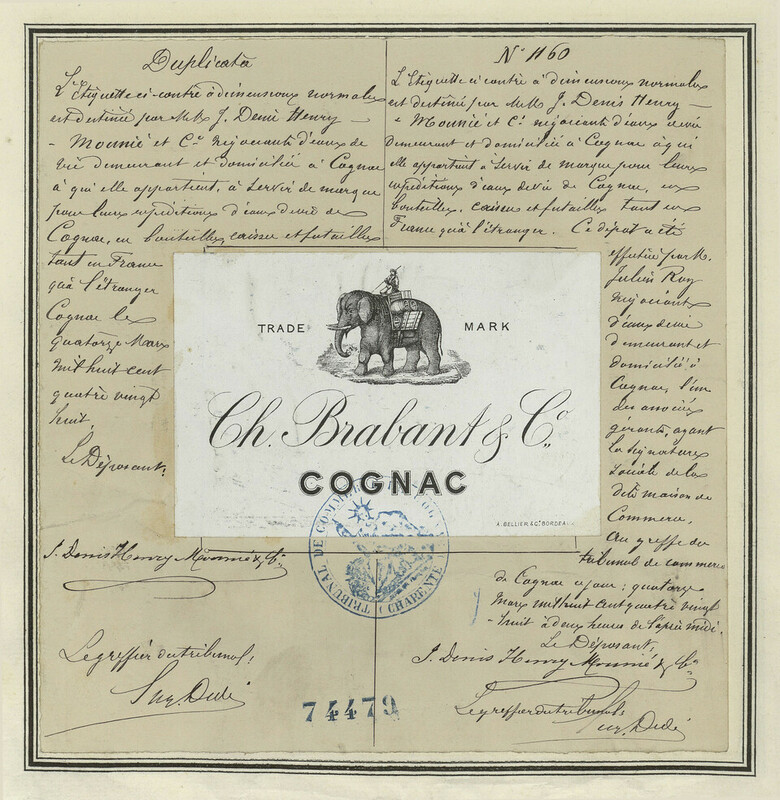 Duplicata
L'Etiquette ci-contre à dimensions normales
est destinée par M.M. J. Denis Henry
- Mounié et Cie négociants d'eaux de
vie demeurant et domiciliés à Cognac
à qui elle appartient, à servir de marque
pour leurs expéditions d'eaux de vie de
Cognac, en bouteilles, caisses et futailles
tant en France
qu'à l'étranger
Cognac le
quatorze Mars
mil huit cent
quatre vingt
huit.
Le Déposant:
J. Denis Henry Mounié & Cie
Le greffier du tribunal:
N° 1160
L'Etiquette ci contre à dimensions normales
est destinée par M.M. J. Denis Henry
- Mounié et Cie négociants d'eaux de vie
demeurant et domiciliés à Cognac à qui
elle appartient à servir de marque pour leurs
expéditions d'eaux de vie de Cognac, en
bouteilles, caisses et futailles tant en
France qu'à l'étranger. Ce dépôt a été
effectué par M.
Julien Roy
négociant
d'eaux de vie
demeurant et
domicilié à
Cognac, l'un
des associés
gérants, ayant
la signature
sociale de la
dite maison de
Commerce.
Au greffe du
tribunal de commerce
de Cognac ce jour: quatorze
Mars mil huit cent quatre vingt
- huit à deux heures de l'après midi.
Le Déposant:
J. Denis Henry Mounié & Cie
Le greffier du tribunal:
TRADE MARK
Ch. Brabant & Co.
COGNAC
A. BELLIER & Cie BORDEAUX
TRIBUNAL DE COMMERCE
CHARENTE
74479